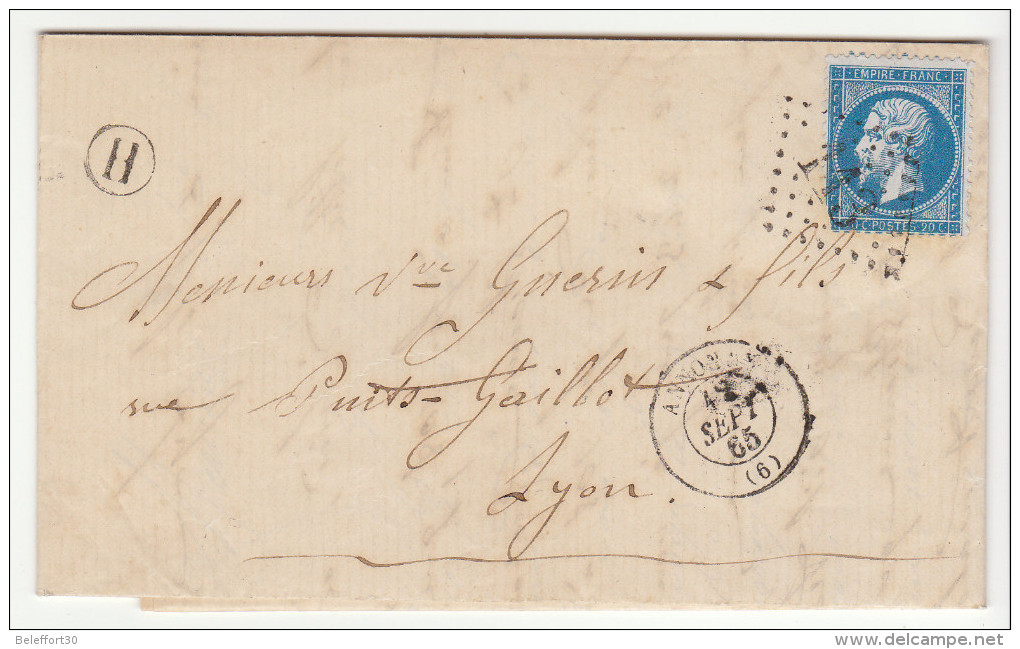 EMPIRE · FRANC
H
20 C · POSTES · 20 C
Messieurs Vve Guerin & fils
rue Puits-Gaillot
Lyon.
ANNONAY
4
SEPT
65
(6)
Beleffort30
delcampe.net